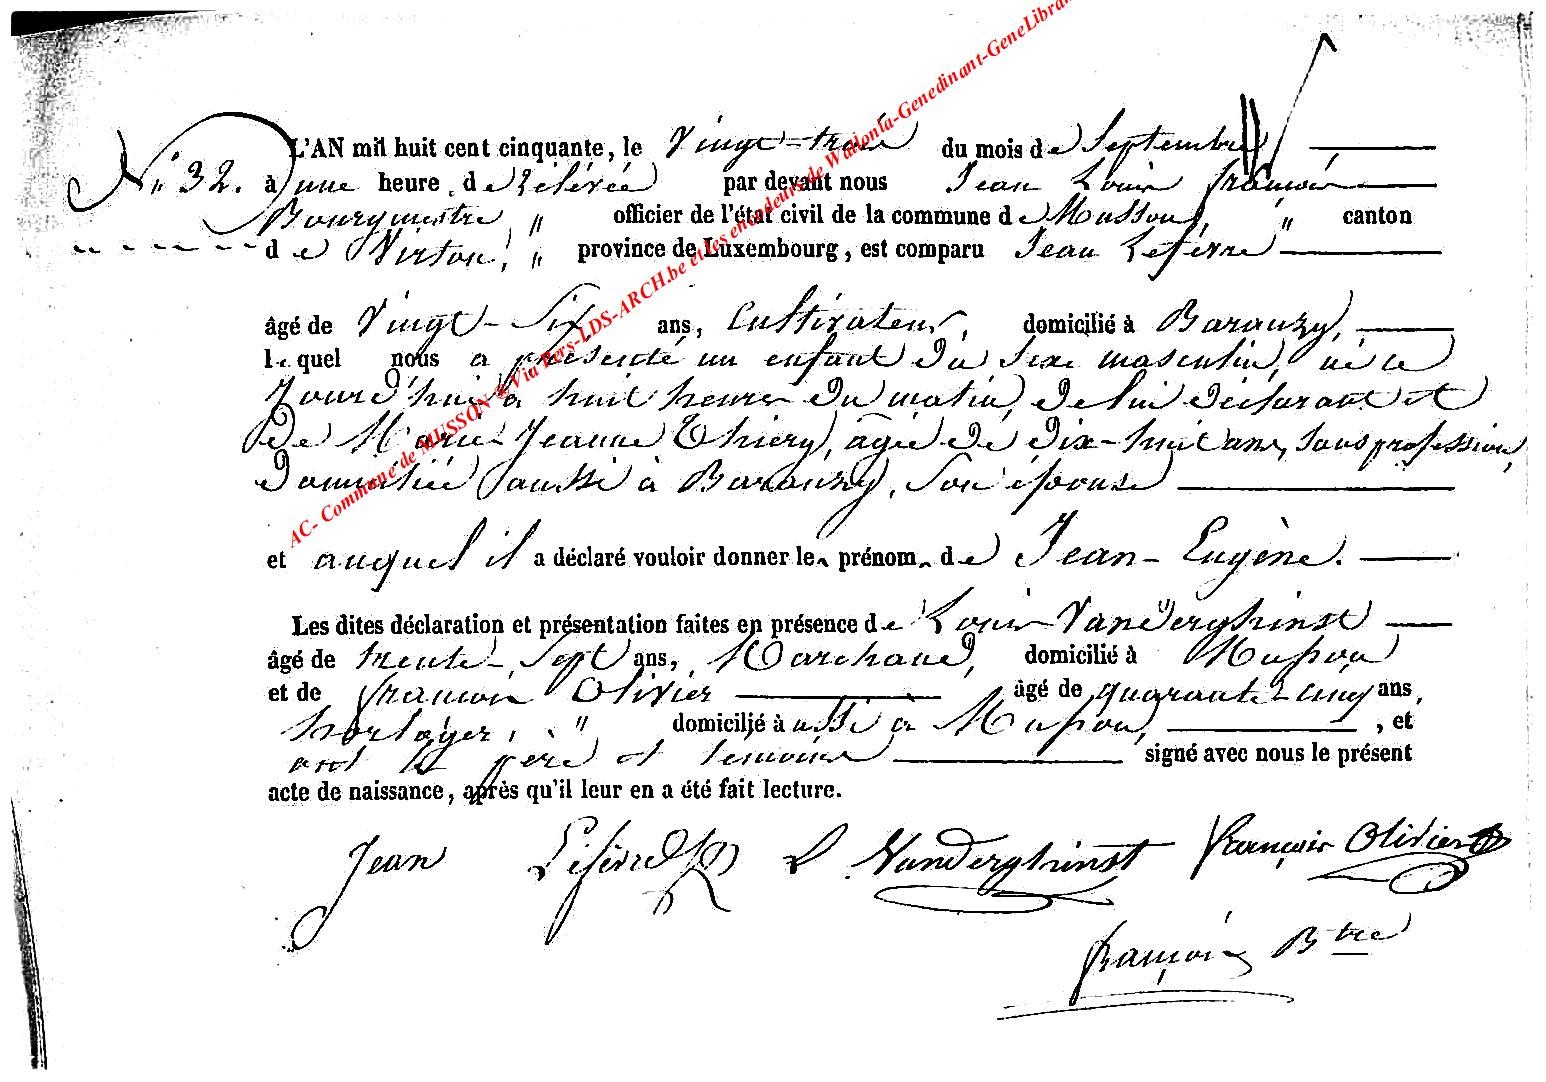 L'AN mil huit cent cinquante, le Vingt-trois du mois de Septembre
N° 32. à une heure de relevée par devant nous Jean Louis françois
Bourgmestre, " officier de l'état civil de la commune de Musson, " canton
de Virton, " province de Luxembourg, est comparu Jean Lefèvre
âgé de Vingt-Six ans, Cultivateur, domicilié à Baranzy,
lequel nous a présenté un enfant du sexe masculin, né ce
jourd'hui à huit heures du matin, de lui déclarant et
de Marie-Jeanne Thiéry, agée de dix-huit ans, sans profession,
domiciliée aussi à Baranzy, Son épouse
et auquel il a déclaré vouloir donner les prénoms de Jean-Eugène.
Les dites déclaration et présentation faites en présence de Louis Vanderghinst
âgé de trente-Sept ans, Marchand, domicilié à Musson
et de françois Olivier âgé de quarante-cinq ans,
horloger, " domicilié aussi à Musson, , et
ont le père et témoins signé avec nous le présent
acte de naissance, après qu'il leur en a été fait lecture.
Jean Lefèvre L Vanderghinst françois Olivier
françois Btre
AC- Commune de MUSSON @ Via Pers-LDS-ARCH.be et les encodeurs de Wallonia-Genedinant-GeneLibran